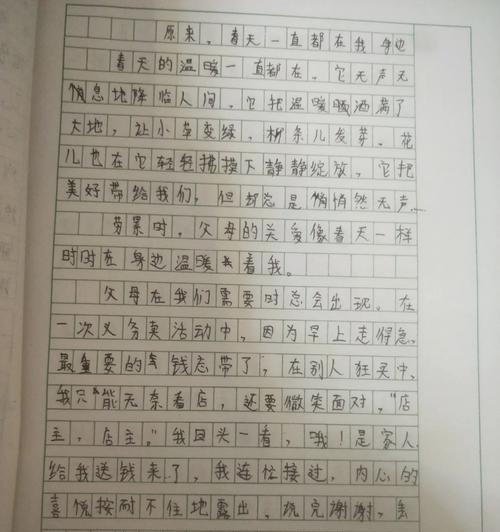 原来，春天一直都在我身边
春天的温暖一直都在。它无声无
悄息地降临人间，它把温暖晒洒满了
大地，让小草变绿，柳条儿发芽。花
儿也在它轻轻拂摸下静静绽放，它把
美好带给我们，但却总是悄悄然无声。
劳累时，父母的关爱像春天一样
时时在身边温暖着我。
父母在我们需要时总会出现。在
一次义务卖活动中，因为早上走得急，
最重要的钱忘带了，在别人狂买中，
我只能无奈看店，还要微笑面对，“店
主，店主。”我回头一看，哦！是家人
给我送钱来了，我连忙接过，内心的
喜悦按耐不住地露出，说完谢谢，